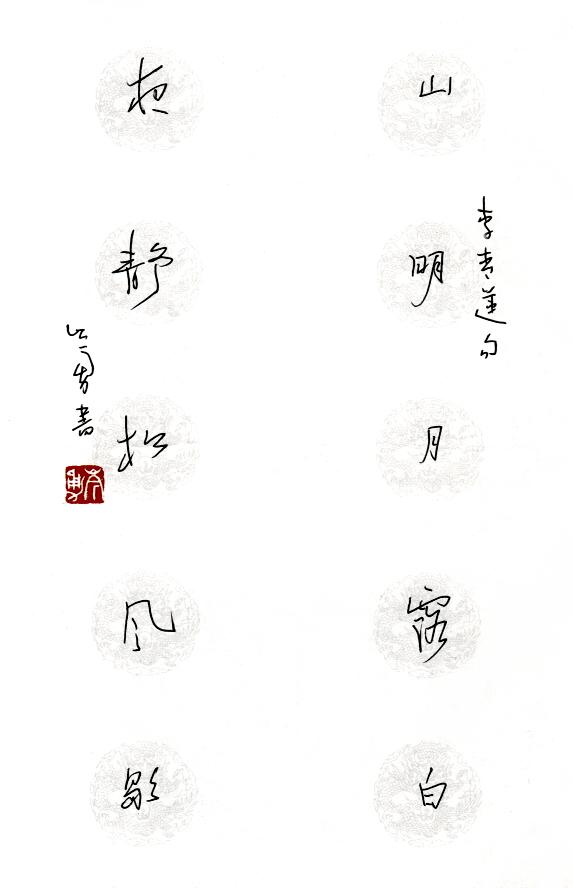 山明月露白
李青蓮句
夜静松风歇
書